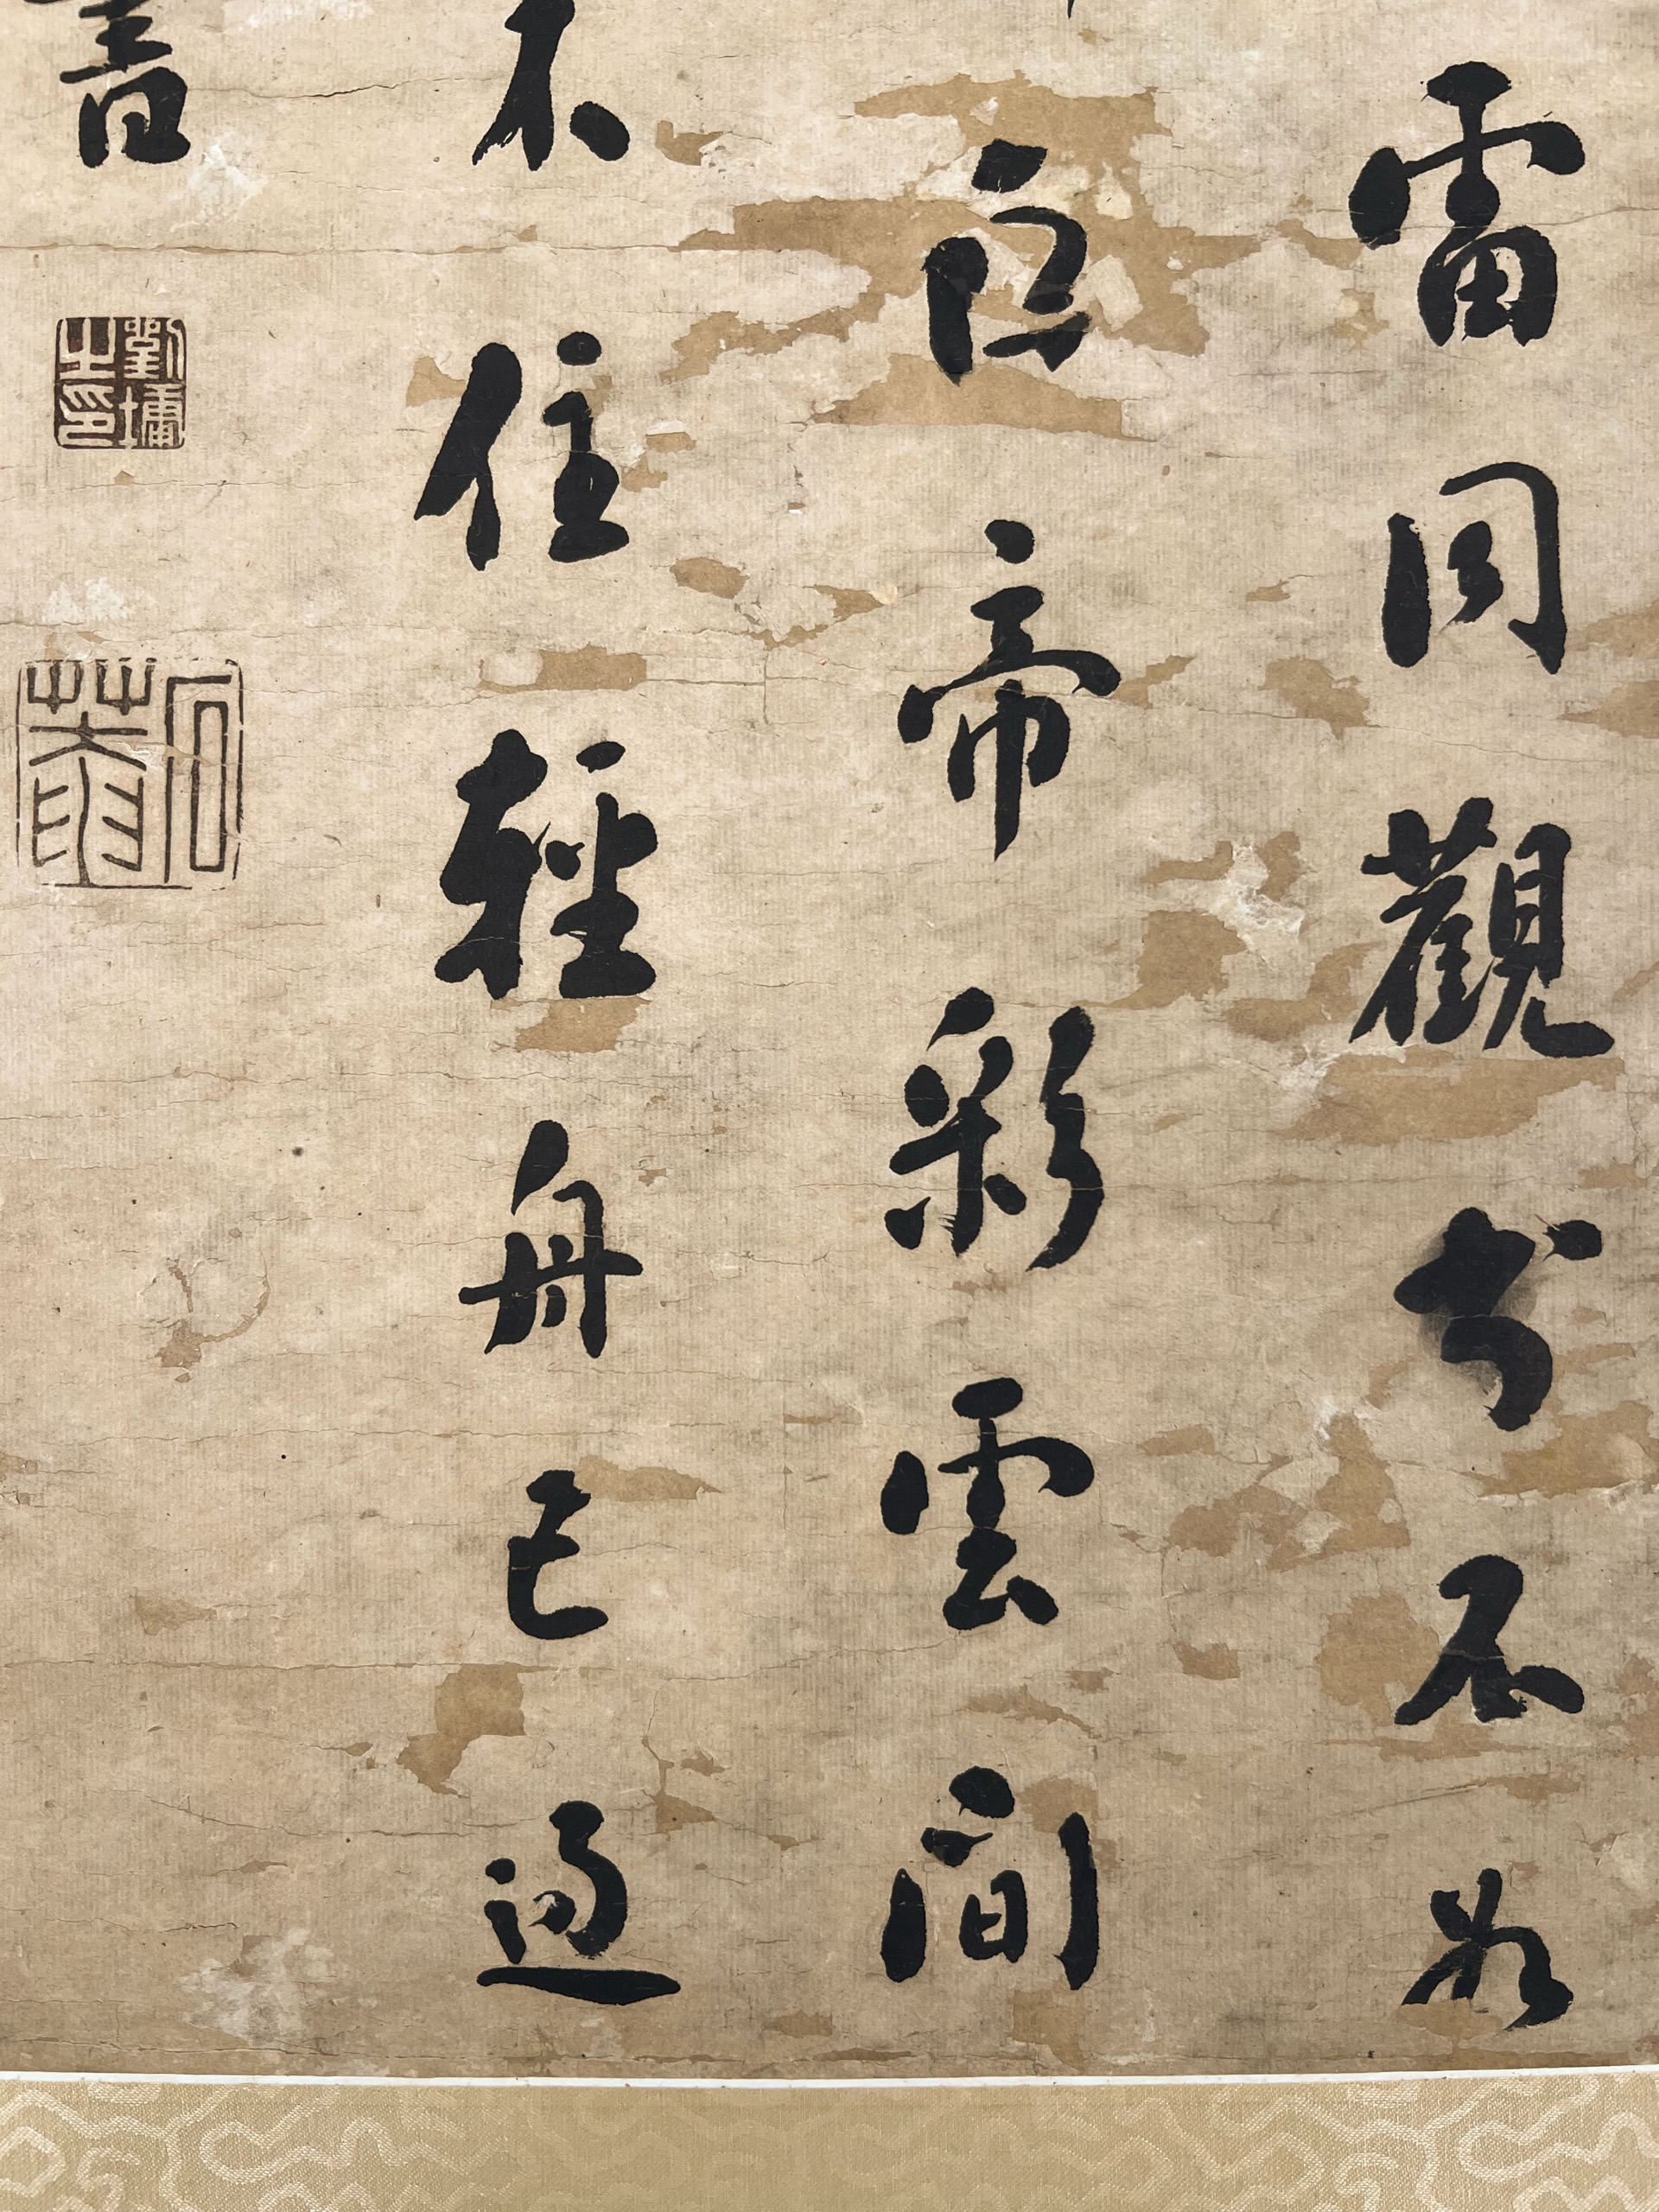 雷同觀书不
白帝彩雲間
不住輕舟已過
書
劉墉之印
石菴